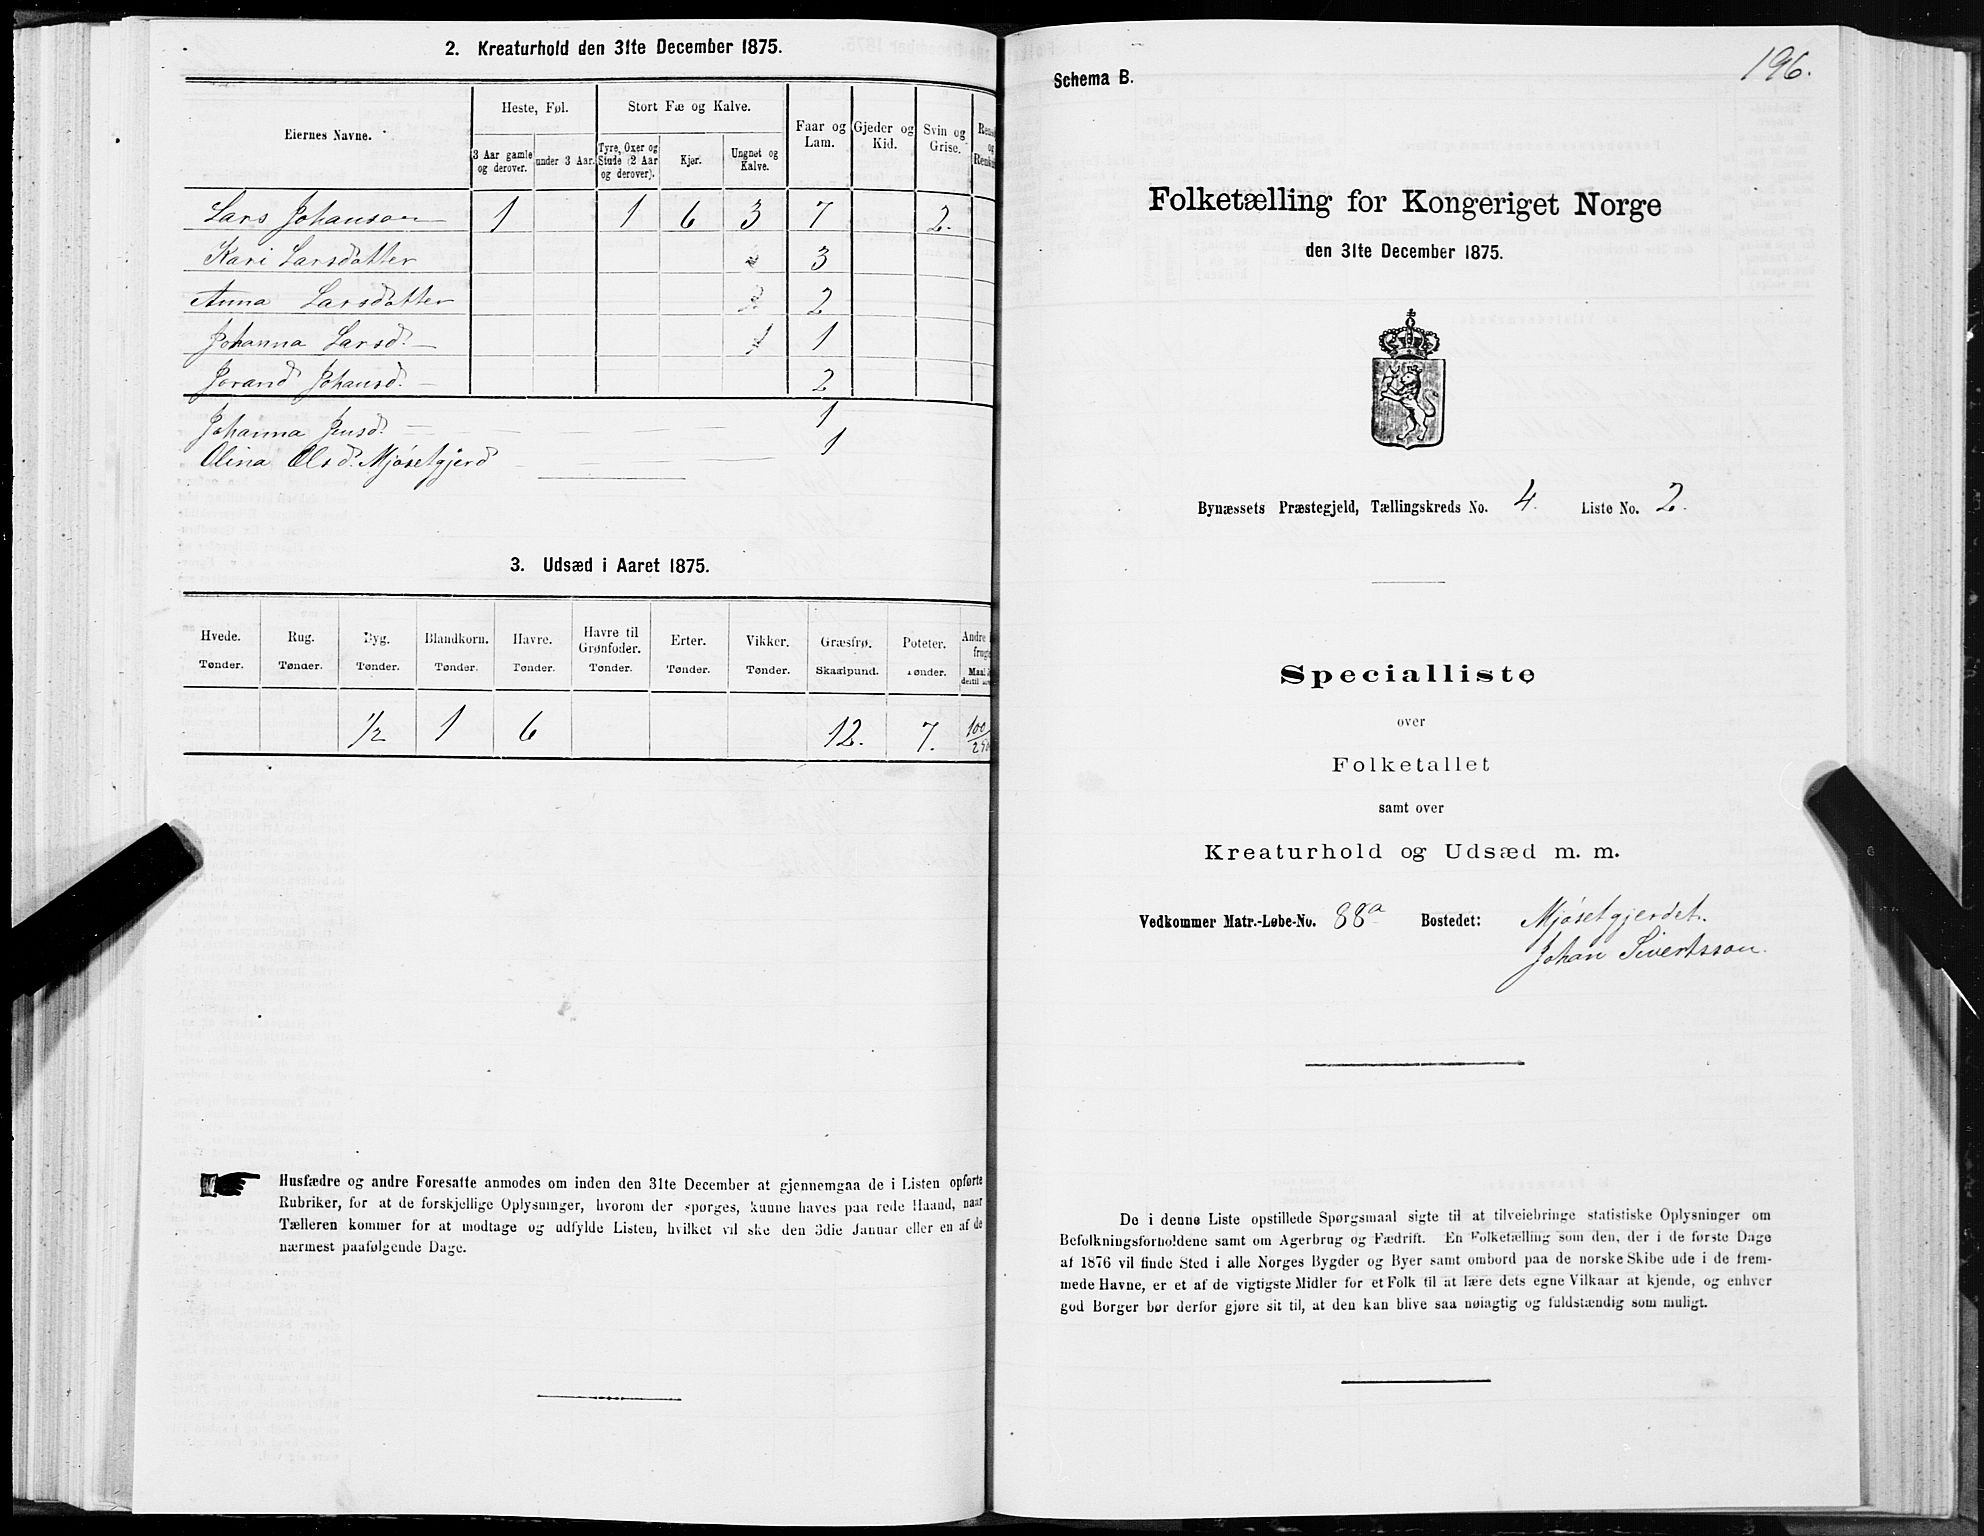 2. Kreaturhold den 31te December 1875.
Eiernes Navne.
Heste, Føl.
Stort Fæ og Kalve.
Faar og Lam.
Gjeder og Kid.
Svin og Grise.
3 Aar gamle og derover.
under 3 Aar.
Tyre, Oxer og Stude (2 Aar og derover).
Kjør.
Ungnøt og Kalve.
Lars Johanson 1 1 6 3 7 2.
Kari Larsdatter 3
Anna Larsdatter 2
Johanna Larsd. 1
Jorand Johansd. 2
Johanna Jensd. 1
Olina Olsd. Mjøsetgjerd 1
3. Udsæd i Aaret 1875.
Hvede. Rug. Byg. Blandkorn. Havre. Havre til Grønfoder. Erter. Vikker. Græsfrø. Poteter. Andre
Tønder. Tønder. Tønder. Tønder. Tønder. Tønder. Tønder. Tønder. Skaalpund. Tønder. Maal
1/2 1 6 12. 7.
Husfædre og andre Foresatte anmodes om inden den 31te December at gjennemgaa de i Listen opførte
Rubriker, for at de forskjellige Oplysninger, hvorom der spørges, kunne haves paa rede Haand, naar
Tælleren kommer for at modtage og udfylde Listen, hvilket vil ske den 3die Januar eller en af de
nærmest paafølgende Dage.
196.
Schema B.
Folketælling for Kongeriget Norge
den 31te December 1875.
Bynæssets Præstegjeld, Tællingskreds No. 4. Liste No. 2.
Specialliste
over
Folketallet
samt over
Kreaturhold og Udsæd m. m.
Vedkommer Matr.-Løbe-No. 88a Bostedet: Mjøsetgjerdet.
Johan Sivertsson.
De i denne Liste opstillede Spørgsmaal sigte til at tilveiebringe statistiske Oplysninger om
Befolkningsforholdene samt om Agerbrug og Fædrift. En Folketælling som den, der i de første Dage
af 1876 vil finde Sted i alle Norges Bygder og Byer samt ombord paa de norske Skibe ude i de frem-
mede Havne, er et af de vigtigste Midler for et Folk til at lære dets egne Vilkaar at kjende, og enhver
god Borger bør derfor gjøre sit til, at den kan blive saa nøiagtig og fuldstændig som muligt.